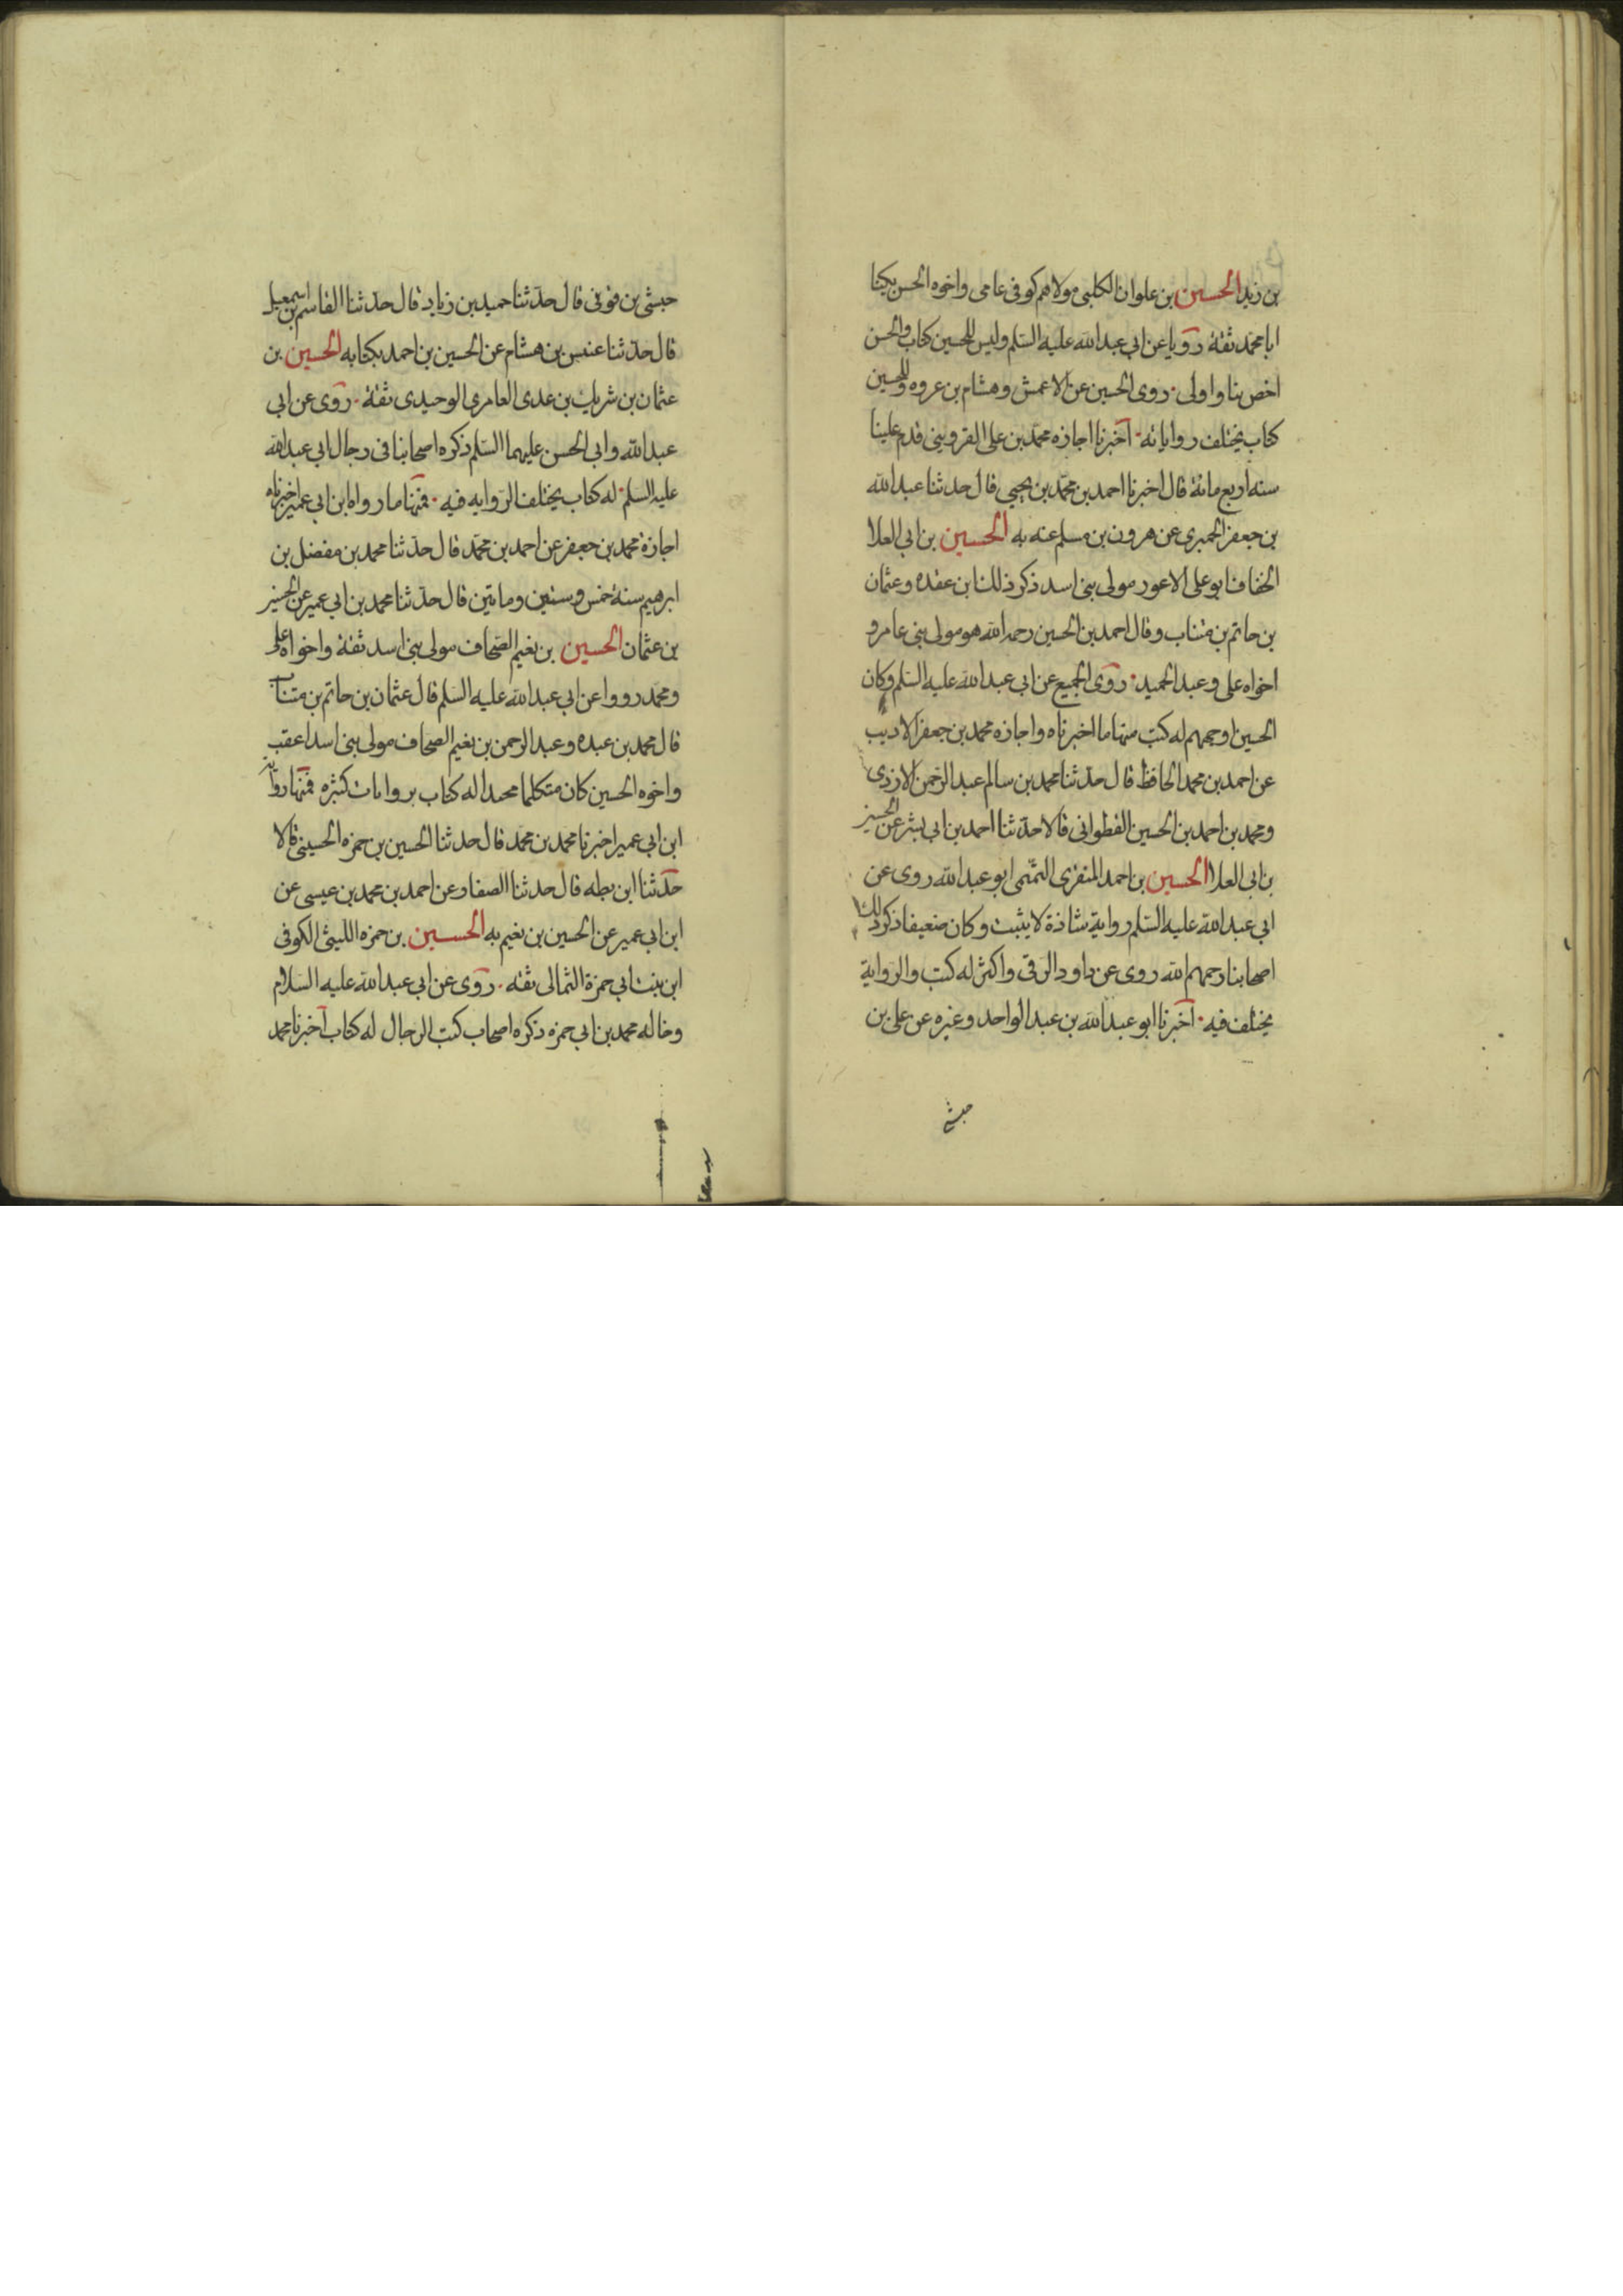 بن زيد الحسين بن علوان الكلبى مولاهم كوفى عامى واخوه الحسن يكنا
ابا محمد ثقة رويا عن ابى عبدالله عليه السلم وليس للحسين كتاب والحسن
اخص بنا واولى روى الحسين عن الاعمش وهشام بن عروه وللحسين
كتاب يختلف رواياته اخبرنا اجازه محمد بن على القزوينى قدم علينا
سنه اربع مائة قال اخبرنا احمد بن محمد بن يحيى قال حدثنا عبدالله
بن جعفر الحميرى عن هرون بن مسلم عنه به الحسين بن ابى العلا
الخفاف ابو على الاعور مولى بنى اسد ذكر ذلك ابن عقده وعثمان
بن حاتم بن منتاب وقال احمد بن الحسين رحمه الله هو مولى بنى عامر و
اخواه على وعبد الحميد روى الجميع عن ابى عبدالله عليه السلم وكان
الحسين اوجههم له كتب منها ما اخبرناه واجازه محمد بن جعفر الاديب
عن احمد بن محمد الحافظ قال حدثنا محمد بن سالم عبد الرحمن الازدى
ومحمد بن احمد بن الحسين القطوانى قالا حدثنا احمد بن ابى بشر عن الحسين
بن ابى العلا الحسين بن احمد المنقرى التميمى ابو عبدالله روى عن
ابى عبدالله عليه السلم رواية شاذة لا يثبت وكان ضعيفا ذكر ذلك
اصحابنا رحمهم الله روى عن داود الرقى واكثر له كتب والرواية
يختلف فيه اخبرنا ابو عبدالله بن عبد الواحد وغيره عن على بن
حبشى
حبشى بن قونى قال حدثنا حميد بن زياد قال حدثنا القاسم بن اسمعيل
قال حدثنا عنبس بن هشام عن الحسين بن احمد بكتابه الحسين بن
عثمان بن شريك بن عدى العامرى الوحيدى ثقة روى عن ابى
عبدالله وابى الحسن عليهما السلم ذكره اصحابنا فى رجال ابى عبدالله
عليه السلم له كتاب يختلف الروايه فيه فمنها ما رواه ابن ابى عمير اخبرناه
اجازة محمد بن جعفر عن احمد بن محمد قال حدثنا محمد بن مفضل بن
ابرهيم سنة خمس وستين وماتين قال حدثنا محمد بن ابى عمير عن الحسين
بن عثمان الحسين بن نعيم الصحاف مولى بنى اسد ثقة واخواه على
ومحمد رووا عن ابى عبدالله عليه السلم قال عثمان بن حاتم بن منتاب
قال محمد بن عبده وعبد الرحمن بن نعيم الصحاف مولى بنى اسد اعقب
واخوه الحسين كان متكلما مجيدا له كتاب بروايات كثيره فمنها رواية
ابن ابى عمير اخبرنا محمد بن محمد قال حدثنا الحسين بن حمزه الحسينى قالا
حدثنا ابن بطه قال حدثنا الصفار عن احمد بن محمد بن عيسى عن
ابن ابى عمير عن الحسين بن نعيم به الحسين بن حمزه الليثى الكوفى
ابن بنت ابى حمزة الثمالى ثقه روى عن ابى عبدالله عليه السلام
وخاله محمد بن ابى حمزه ذكره اصحاب كتب الرجال له كتاب اخبرنا محمد